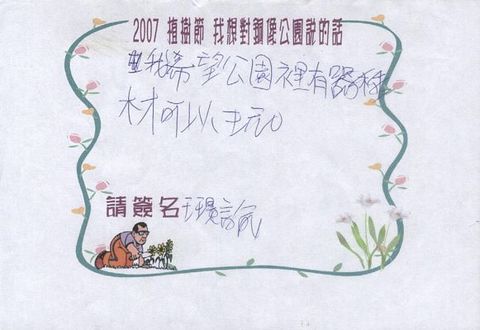 2007 植樹節 我想對銅像公園說的話
我希望公園裡有器
材可以玩
請簽名 王